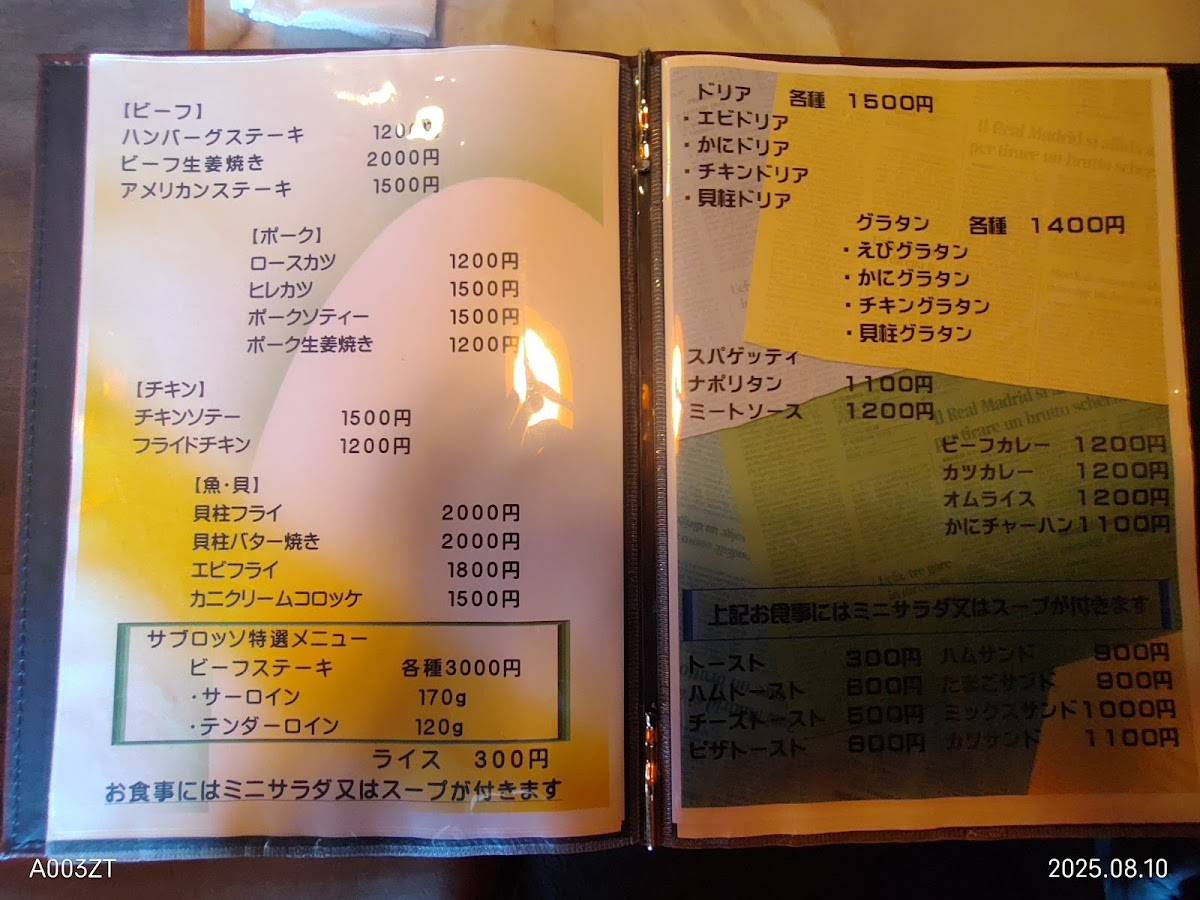 【ビーフ】
ハンバーグステーキ 120
ビーフ生姜焼き 2000円
アメリカンステーキ 1500円
【ポーク】
ロースカツ 1200円
ヒレカツ 1500円
ポークソティー 1500円
ポーク生姜焼き 1200円
【チキン】
チキンソテー 1500円
フライドチキン 1200円
【魚・貝】
貝柱フライ 2000円
貝柱バター焼き 2000円
エビフライ 1800円
カニクリームコロッケ 1500円
サブロッソ特選メニュー
ビーフステーキ 各種3000円
・サーロイン 170g
・テンダーロイン 120g
ライス 300円
お食事にはミニサラダ又はスープが付きます
ドリア 各種 1500円
・エビドリア
・かにドリア
・チキンドリア
・貝柱ドリア
グラタン 各種 1400円
・えびグラタン
・かにグラタン
・チキングラタン
・貝柱グラタン
スパゲッティ
ナポリタン 1100円
ミートソース 1200円
ビーフカレー 1200円
カツカレー 1200円
オムライス 1200円
かにチャーハン 1100円
上記お食事にはミニサラダ又はスープが付きます
トースト 300円 ハムサンド 900円
ハムトースト 600円 たまごサンド 900円
チーズトースト 500円 ミックスサンド 1000円
ピザトースト 600円 カツサンド 1100円
Il Real Madrid si
per tirare un brutto scher
Il Real Madrid si
tirare un brutto scher
A003ZT
2025.08.10